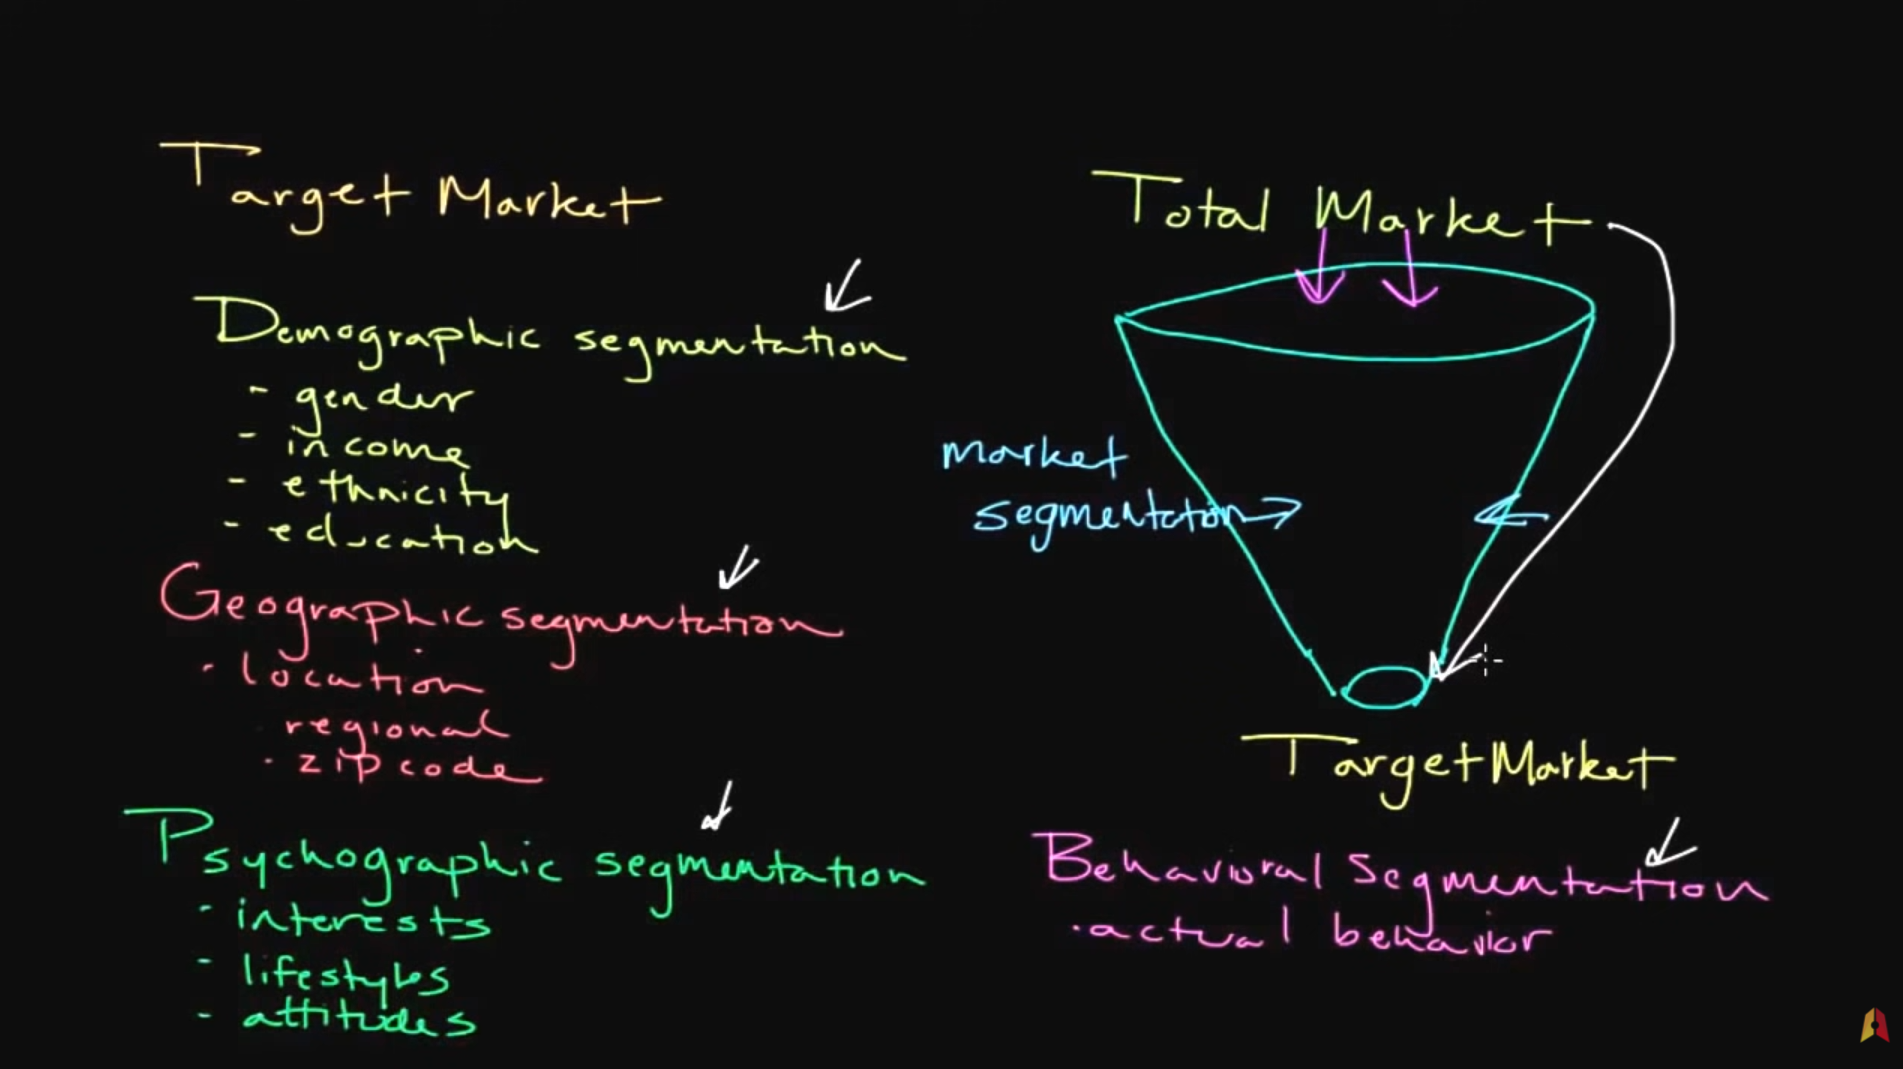 Target Market
Demographic segmentation
- gender
- income
- ethnicity
- education
Geographic segmentation
· location
regional
· zip code
Psychographic segmentation
· interests
- lifestyles
- attitudes
Total Market
market
segmentation
Target Market
Behavioral Segmentation
· actual behavior